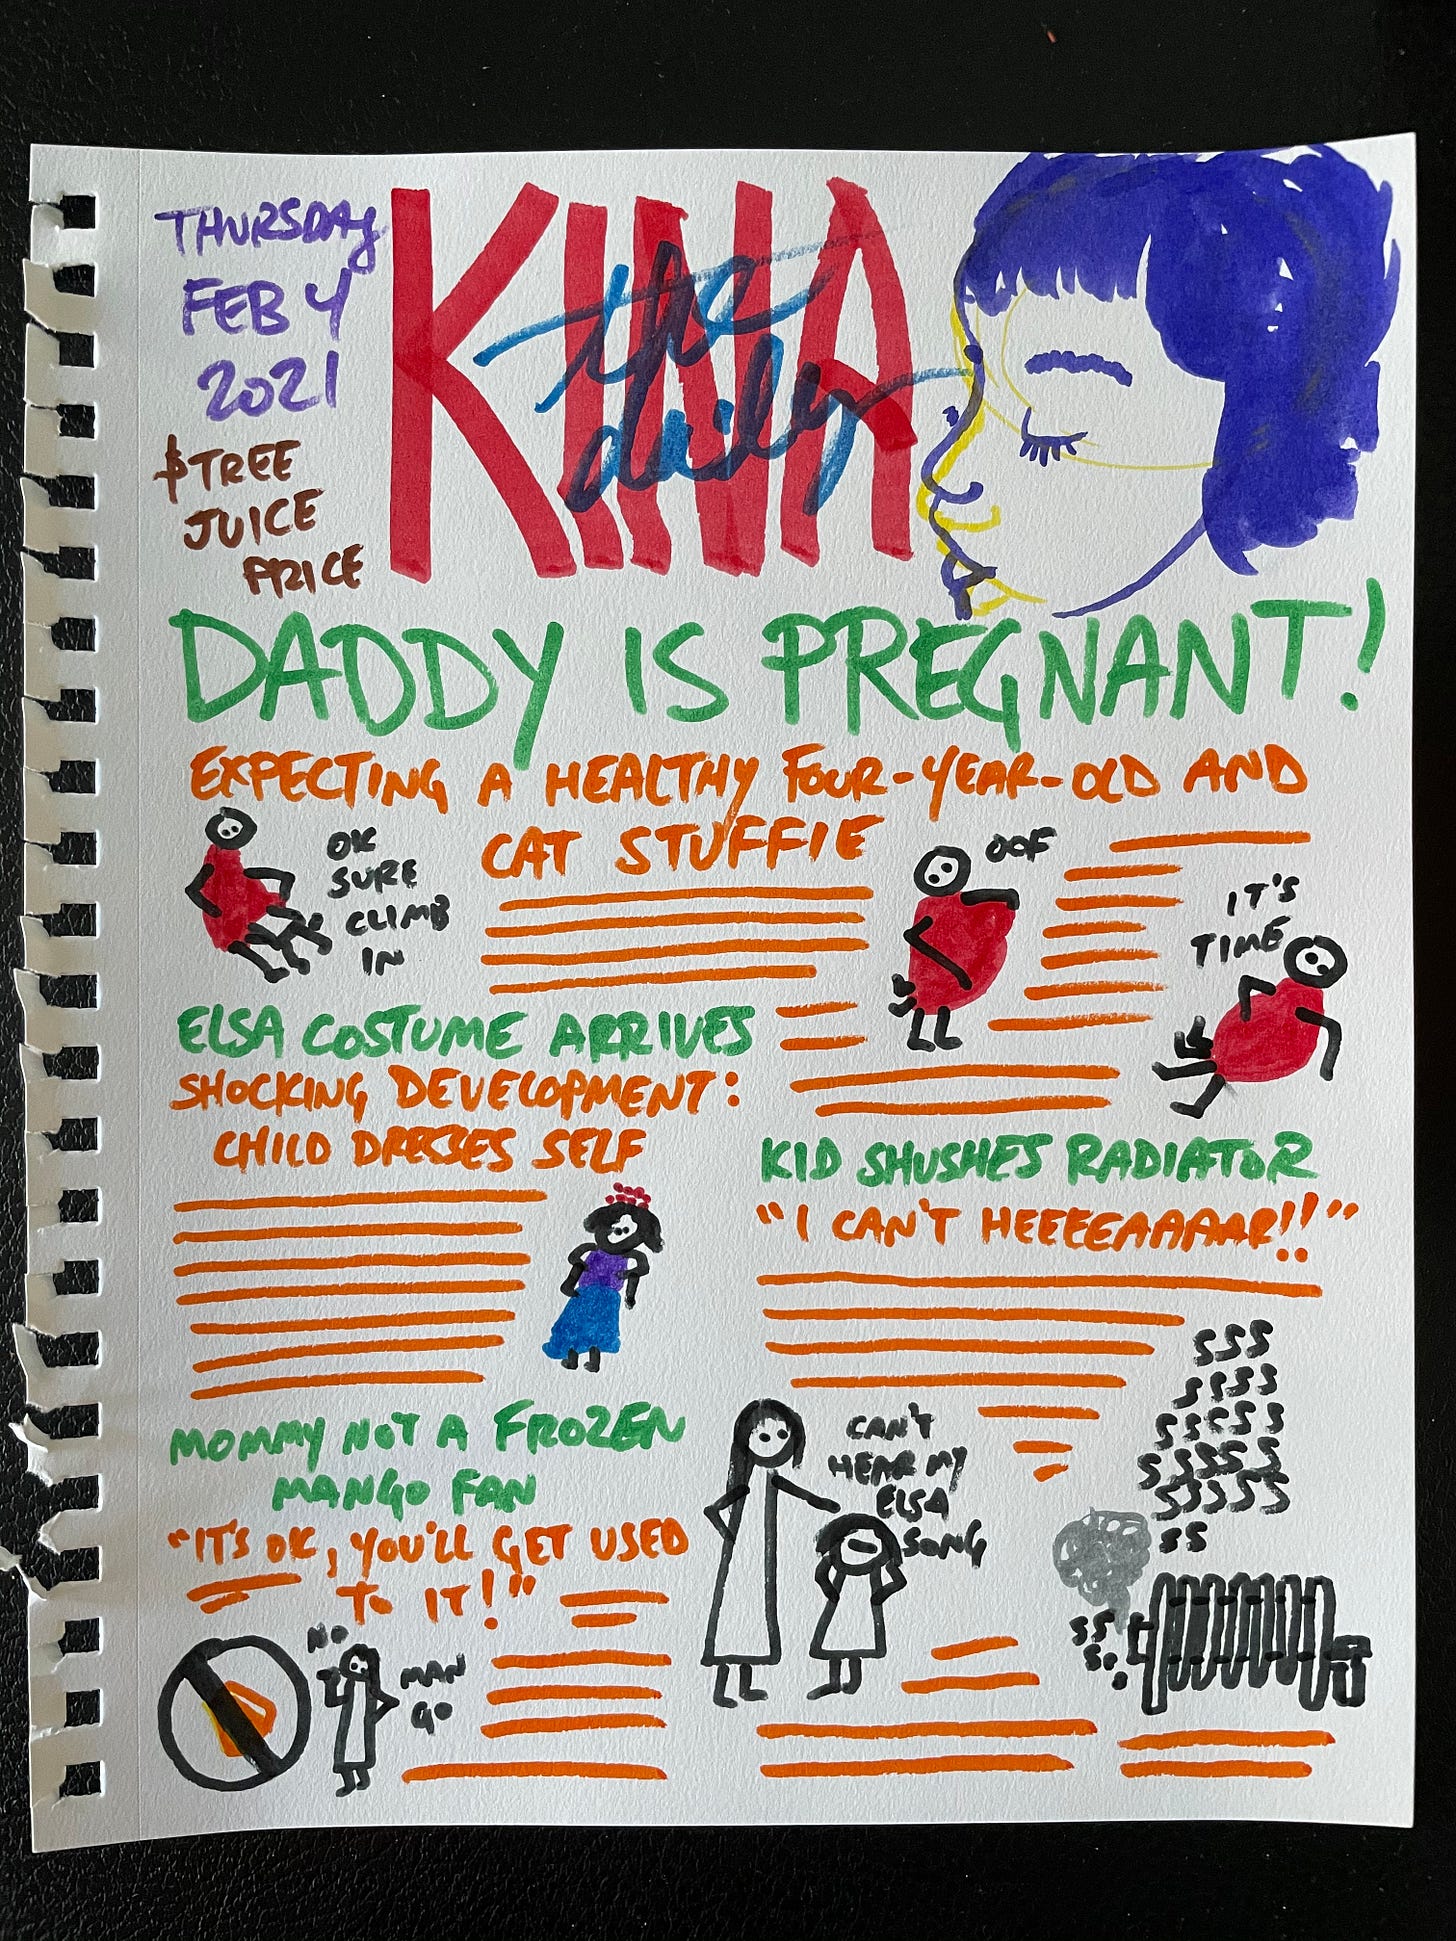 THURSDAY
FEB 4
2021
$TREE
JUICE
PRICE
KINA
the
daily
DADDY IS PREGNANT!
EXPECTING A HEALTHY FOUR-YEAR-OLD AND
CAT STUFFIE
OK
SURE
CLIMB
IN
OOF
IT'S
TIME
ELSA COSTUME ARRIVES
SHOCKING DEVELOPMENT:
CHILD DRESSES SELF
KID SHUSHES RADIATOR
"I CAN'T HEEEEAAAAAR!!"
CAN'T
HEAR MY
ELSA
SONG
SSS
SSSS
SSSSS
SSSSSS
SSSSS
SS
SS
MOMMY NOT A FROZEN
MANGO FAN
"IT'S OK, YOU'LL GET USED
TO IT!"
NO
MAN
GO